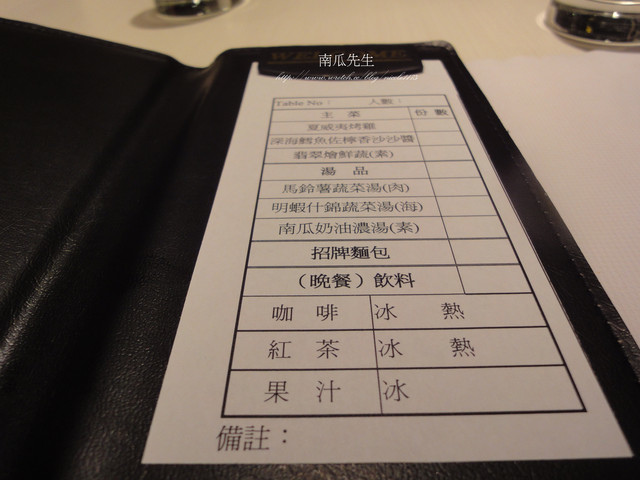 WELCOME
南瓜先生
Table No： 人數：
主 菜 份 數
夏威夷烤雞
深海鱈魚佐檸香沙沙醬
翡翠燴鮮蔬(素)
湯 品
馬鈴薯蔬菜湯(肉)
明蝦什錦蔬菜湯(海)
南瓜奶油濃湯(素)
招牌麵包
（晚餐）飲料
咖 啡 冰 熱
紅 茶 冰 熱
果 汁 冰
備註：